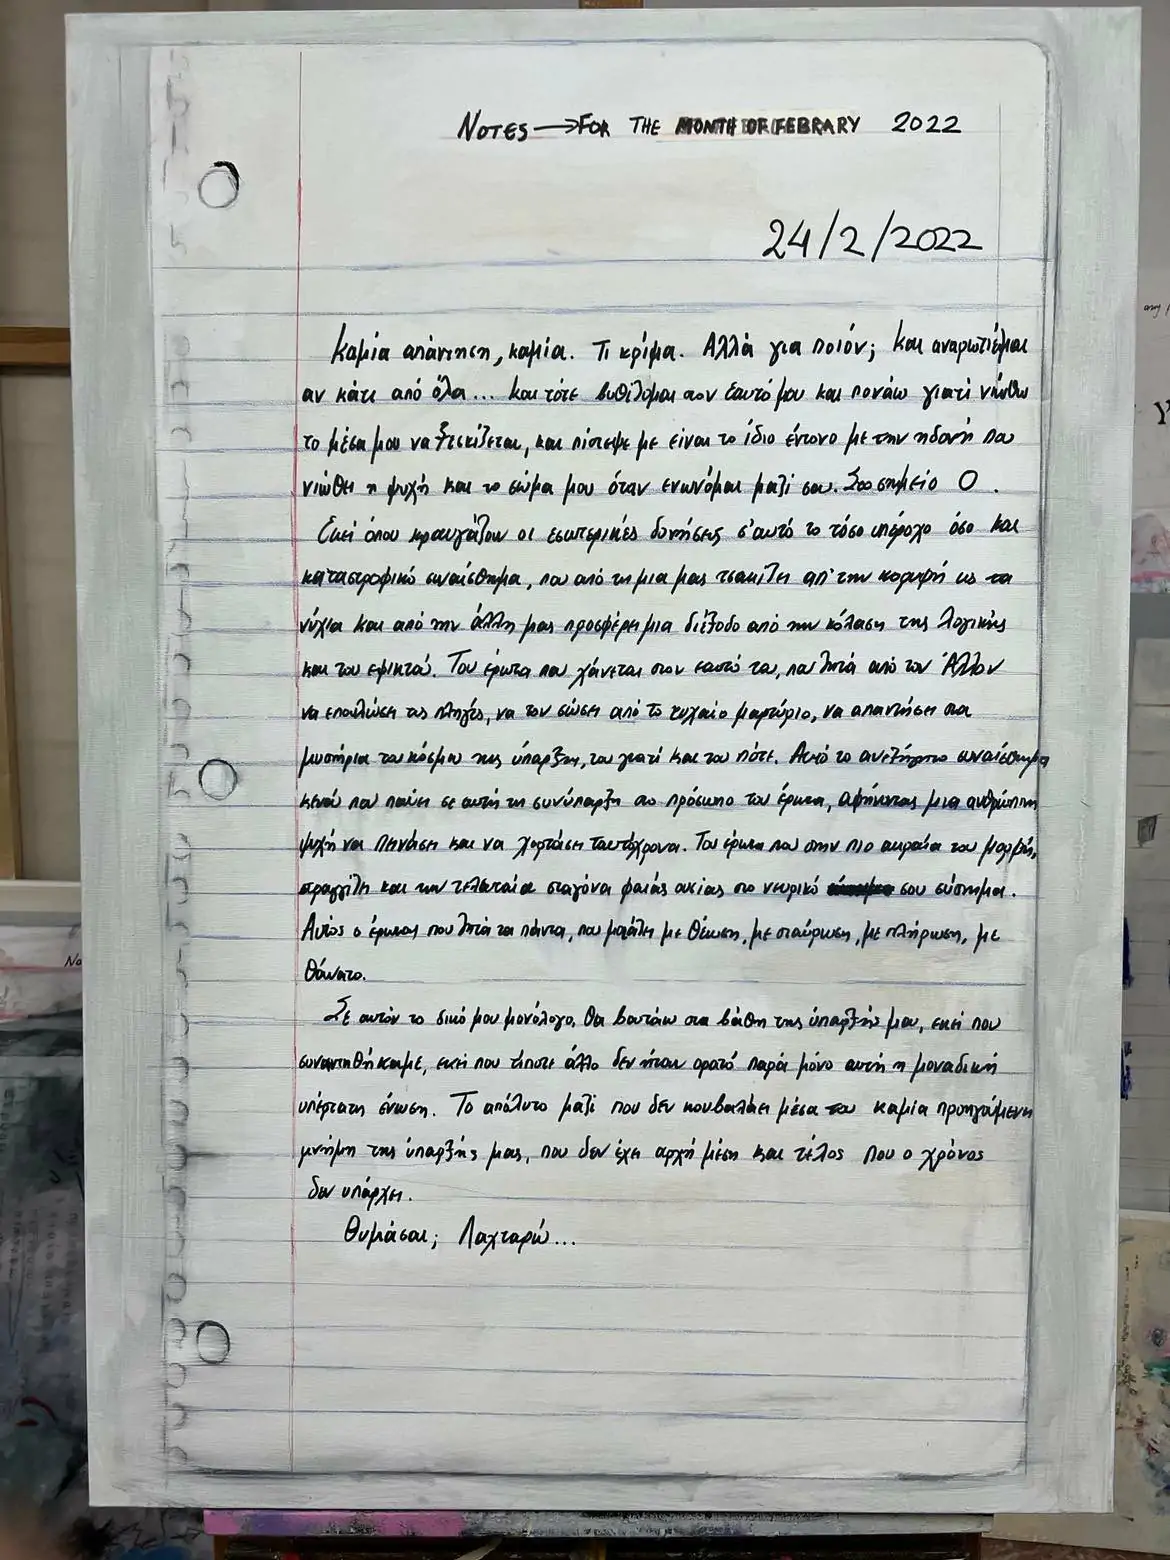 NOTES → FOR THE MONTH OF FEBRARY 2022
24/2/2022
Καμία απάντηση, καμία. Τι κρίμα. Αλλά για ποιόν; Και αναρωτιέμαι
αν κάτι από όλα... Και τότε βυθίζομαι στον εαυτό μου και πονάω γιατί νιώθω
το μέσα μου να ξεσκίζεται, και πίστεψε με είναι το ίδιο έντονο με την ηδονή που
νιώθει η ψυχή και το σώμα μου όταν ενωνόμαι μαζί σου. Στο σημείο Ο.
Εκεί όπου κραυγάζουν οι εσωτερικές δονήσεις σ' αυτό το τόσο υπέροχο όσο και
καταστροφικό συναίσθημα, που από τη μια μας τσακίζει απ' την κορυφή ως τα
νύχια και από την άλλη μας προσφέρει μια διέξοδο από την κόλαση της λογικής
και του εφικτού. Του έρωτα που χάνεται στον εαυτό του, που ζητά από τον Άλλον
να επουλώσει τις πληγές, να τον σώσει από το τυχαίο μαρτύριο, να απαντήσει στα
μυστήρια του κόσμου της ύπαρξης, του γιατί και του πότε. Αυτό το ανεξήγητο συναίσθημα
κενού που παύει σε αυτή τη συνύπαρξη στο πρόσωπο του έρωτα, αφήνοντας μια ανθρώπινη
ψυχή να πεινάσει και να χορτάσει ταυτόχρονα. Του έρωτα που στην πιο ακραία του μορφή,
στραγγίζει και την τελευταία σταγόνα φαιάς ουσίας στο νευρικό σου σύστημα.
Αυτός ο έρωτας που ζητά τα πάντα, που μοιάζει με θέωση, με σταύρωση, με πλήρωση, με
θάνατο.
Σε αυτόν το δικό μου μονόλογο, θα βουτάω στα βάθη της ύπαρξής μου, εκεί που
συναντηθήκαμε, εκεί που τίποτε άλλο δεν ήταν ορατό παρά μόνο αυτή η μοναδική
υπέρτατη ένωση. Το απόλυτο μαζί που δεν κουβαλάει μέσα του καμία προηγούμενη
μνήμη της ύπαρξής μας, που δεν έχει αρχή μέση και τέλος που ο χρόνος
δεν υπάρχει.
Θυμάσαι; Λαχταρώ...